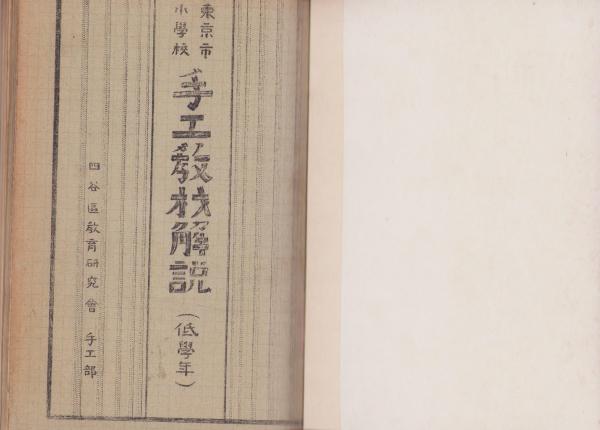 東京市
小學校
手工教材解説
(低學年)
四谷區教育研究會 手工部